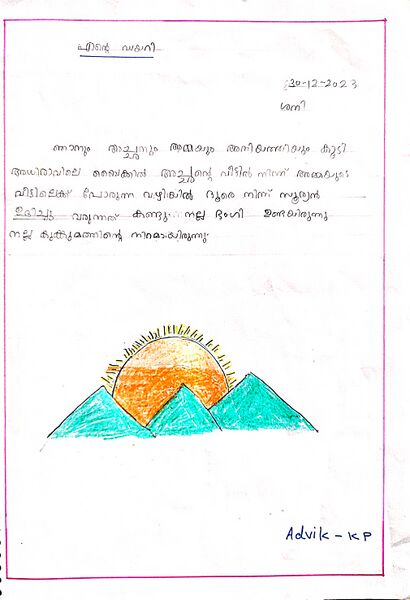 എന്റെ ഡയറി
30-12-2023
ശനി
ഞാനും അച്ഛനും അമ്മയും അനിയത്തിയും കൂടി
അതിരാവിലെ ബൈക്കിൽ അച്ഛന്റെ വീട്ടിൽ നിന്ന് അമ്മയുടെ
വീട്ടിലെക്ക് പോരുന്ന വഴിയിൽ ദൂരെ നിന്ന് സൂര്യൻ
ഉദിച്ചു വരുന്നത് കണ്ടു. നല്ല ഭംഗി ഉണ്ടയിരുന്നു
നല്ല കുങ്കുമത്തിന്റെ നിറമായിരുന്നു.
Advik - KP